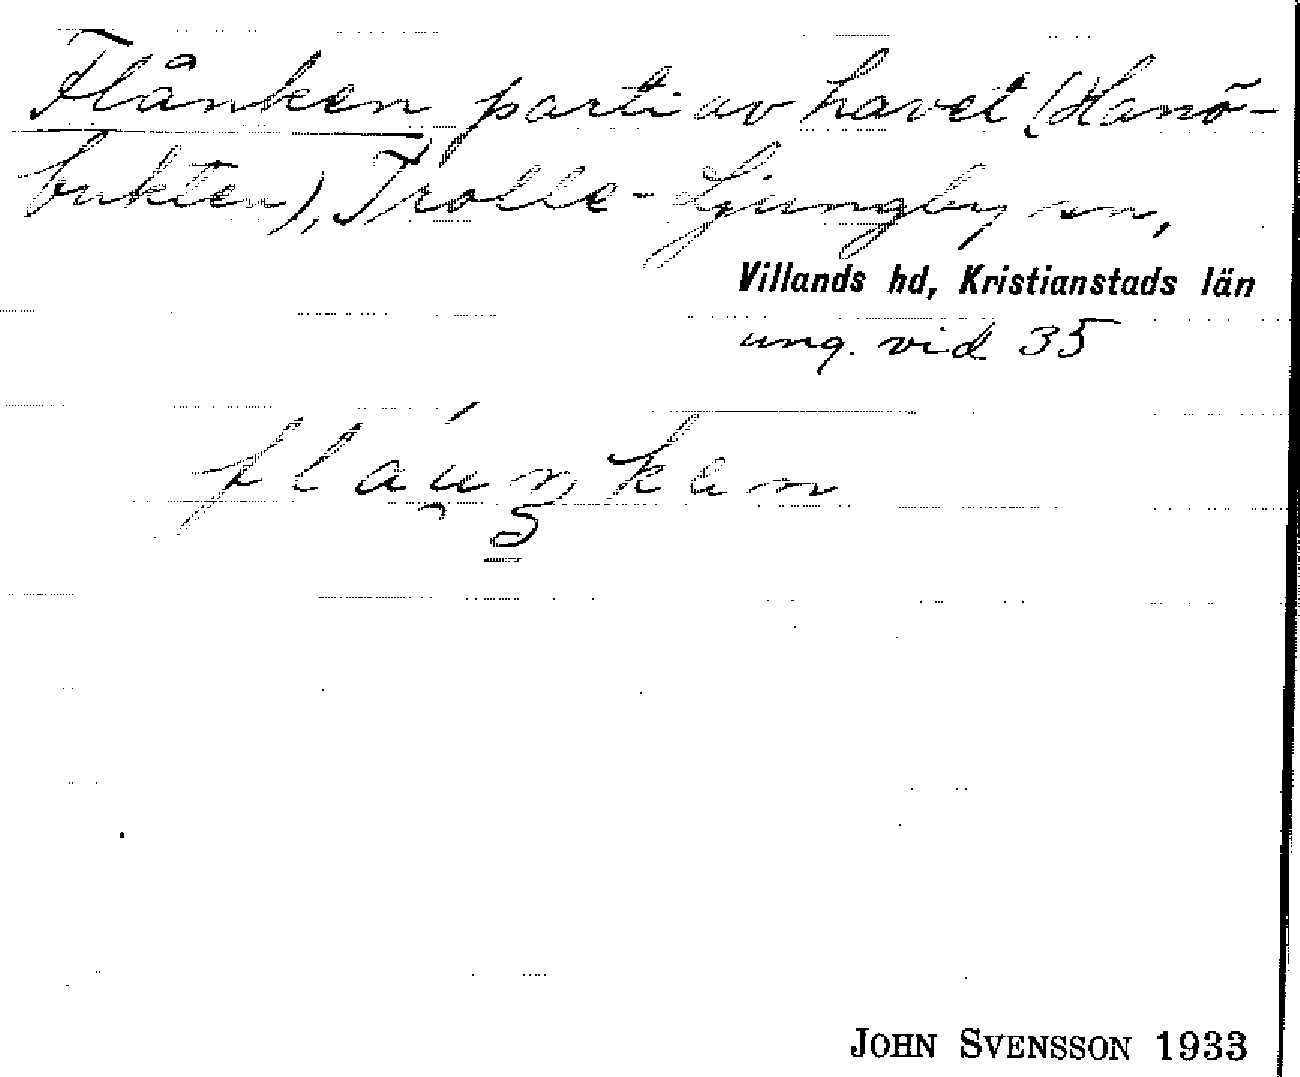 Flånken parti av havet (Hanö-
bukten), Trolle-Ljungby sn,
Villands hd, Kristianstads län
ung. vid 35
fláu̯ŋken
JOHN SVENSSON 1933